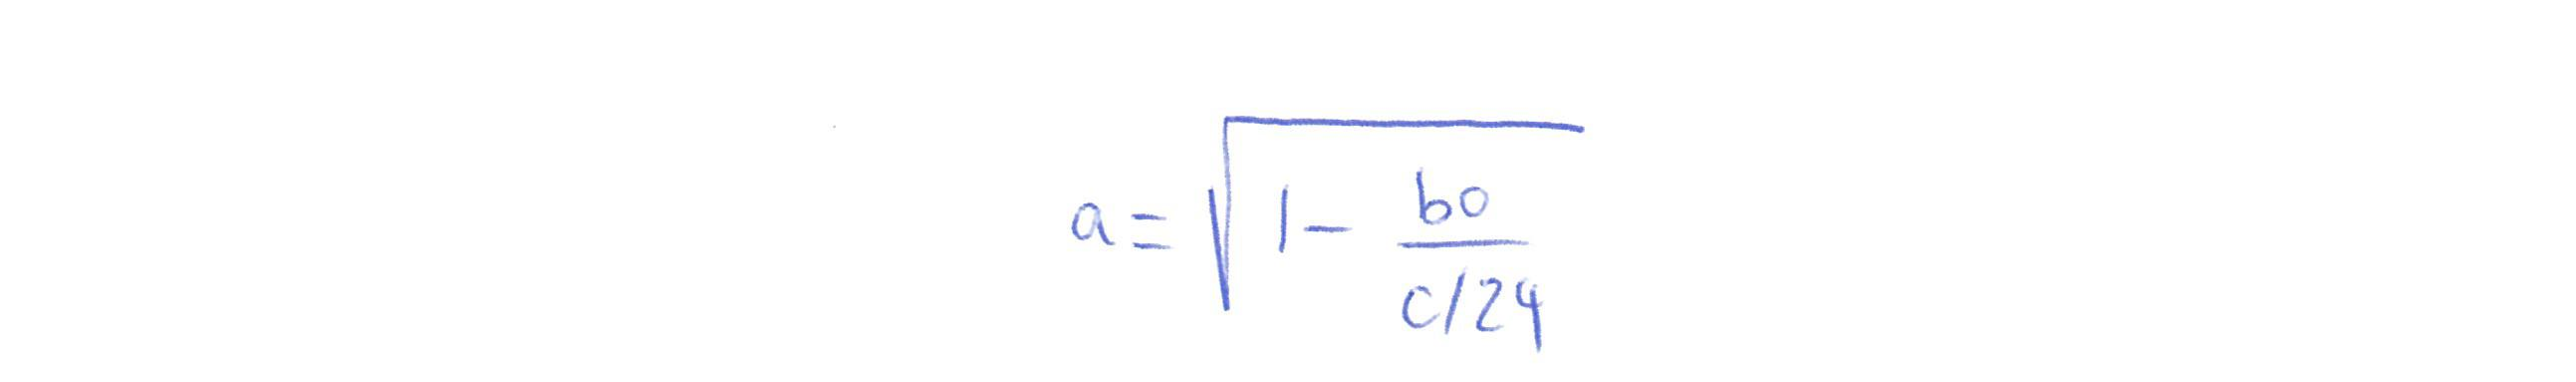 a = √(1 - bo/(c/24))